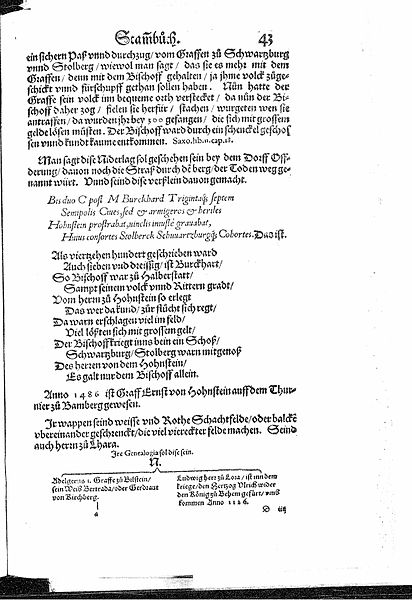 Stam̃buch. 43
ein sichern Paß vnnd durchzug/ vom Graffen zu Schwartzburg
vnnd Stolberg/ wiewol man sagt/ das sie es mehr mit dem
Graffen/ denn mit dem Bischoff gehalten/ ja jhme volck zuge-
schickt vnnd fürschupff gethan sollen haben. Nün hatte der
Graffe sein volck inn bequeme orth verstecket/ da nün der Bi-
schoff daher zog/ fielen sie herfür/ stachen/ wurgeten wen sie
antraffen/ da wurden jhr bey 300 gefangen/ die sich mit grossem
gelde lösen müsten. Der Bischoff ward durch ein schenckel geschos
sen vnnd kundt kaume entkommen. Saxo.lib.11.cap.18.
Man sagt dise Niderlag sol geschehen sein bey dem Dorff Off-
derung/ dauon noch die Straß durch dẽ berg/ der Toden weg ge-
nannt würt. Vnnd seind dise verßlein dauon gemacht.
Bis duo C post M Burckhard Trigintaq; septem
Semipolis Ciues, sed & armigeros & heriles
Hohnstein prostrabat, uinclis inustè grauabat,
Huius consortes Stolberck Schuuartzburgq; Cohortes. Das ist.
Als viertzehen hundert geschrieben ward
Auch sieben vnd dreissig/ ist Burckhart/
So Bischoff war zu Halberstatt/
Sampt seinem volck vnnd Rittern gradt/
Vom herrn zu Hohnstein so erlegt
Das wer da kund/ zur flücht sich regt/
Da warn erschlagen viel im feld/
Viel lößten sich mit grossen gelt/
Der Bischoff kriegt inns bein ein Schoß/
Schwartzburg/ Stolberg warn mitgenoß
Des herren von dem Hohnstein/
Es galt nur dem Bischoff allein.
Anno 1486 ist Graff Ernst von Hohnstein auff dem Thur-
nier zu Bamberg gewesen.
Jr wappen seind weisse vnd Rothe Schachtfelde/ oder balckẽ
vbereinander geschrenckt/ die viel viereckter felde machen. Seind
auch herrn zu Lhara.
Jre Genealogia sol dise sein.
N.
Adelgerus 1. Graffe zu Bilstein/
sein Weib Bertrada/ oder Gerdraut
von Kirchberg.
a
Ludwig herr zu Lora/ ist inn dem
kriege/ den Hertzog Vlrich wider
den König zu Behem gefürt/ vmb
kommen Anno 1126.
D iiij